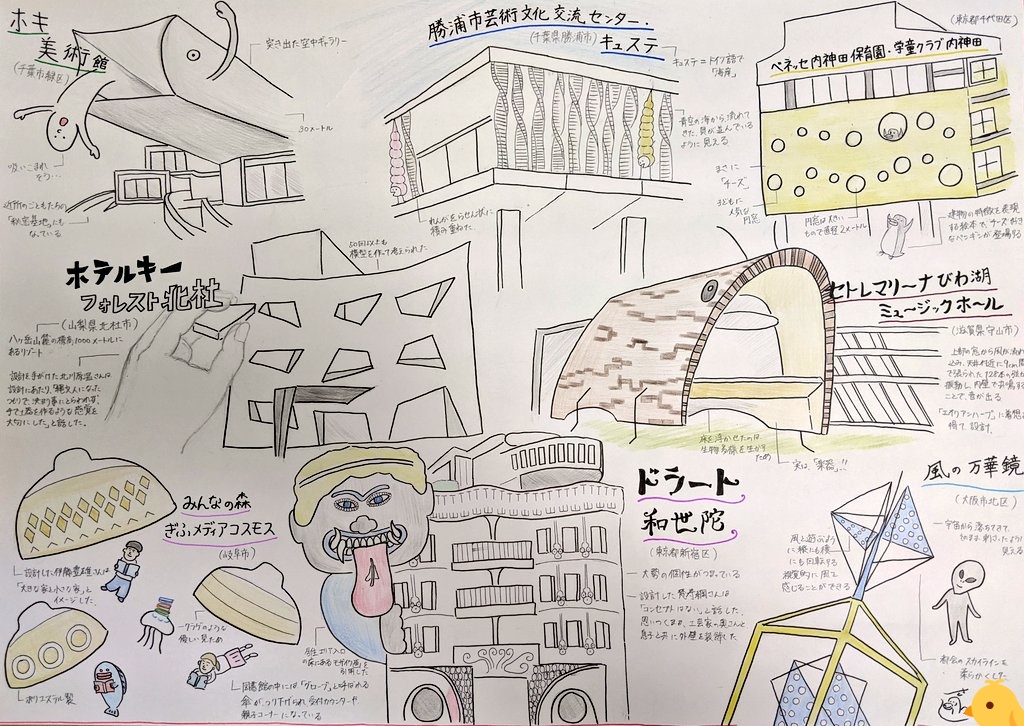 ホキ
美術館
(千葉市緑区)
突き出た空中ギャラリー
30メートル
吸いこまれ
そう…
近所のこどもたちの
「秘密基地」にも
なっている
勝浦市芸術文化交流センター・
キュステ
(千葉県勝浦市)
キュステ=ドイツ語で
「海岸」
青空の海から、流れて
きた、貝が並んでいる
ように見える
れんがをらせん状に
積み重ねた
(東京都千代田区)
ベネッセ内神田保育園・学童クラブ内神田
まさに
「チーズ」
子どもに
人気な
円窓
円窓は大きい
もので直径2メートル
建物の特徴を表現
する絵本で、チーズ好き
なペンギンが登場する
ホテルキー
フォレスト北杜
(山梨県北杜市)
八ヶ岳山麓の標高1000メートルに
あるリゾート
設計を手がけた北川原温さんは
設計にあたり、「縄文人になった
つもりで、決まり事にとらわれず、
手で土器を作るような感覚を
大切にした」と話した。
50回以上も
模型を作って考えられた
セトレマリーナびわ湖
ミュージックホール
(滋賀県守山市)
上部の窓から風が流れ
込み、天井付近に9cm間
で張られた128本の弦が
振動し、内壁で共鳴する
ことで、音が出る
「エオリアンハープ」に着想を
得て、設計.
床を浮かせたのは
生物多様を生かす
ため
実は、「楽器」!!
みんなの森
ぎふメディアコスモス
(岐阜市)
設計した伊藤豊雄さんは
「大きな家と小さな家」と
イメージした.
クラゲのような
優しい見ため
ポリエステル製
図書館の中には「グローブ」と呼ばれる
傘が、つり下げられ、受付カウンターや、
親子コーナーになっている
ドラード
和世陀
(東京都新宿区)
大勢の個性がつまっている
設計した梵寿綱さんは
「コンセプトはない」と話した.
思いつくまま、工芸家の奥さんと
息子と共に外壁を装飾した
風の万華鏡
(大阪市北区)
宇宙から落ちてきて、
そのまま刺さったように
見える
風と遊ぶよう
に縦にも横
にも回転する
視覚的に風を
感じることができる
都会のスカイラインを
柔らかくした